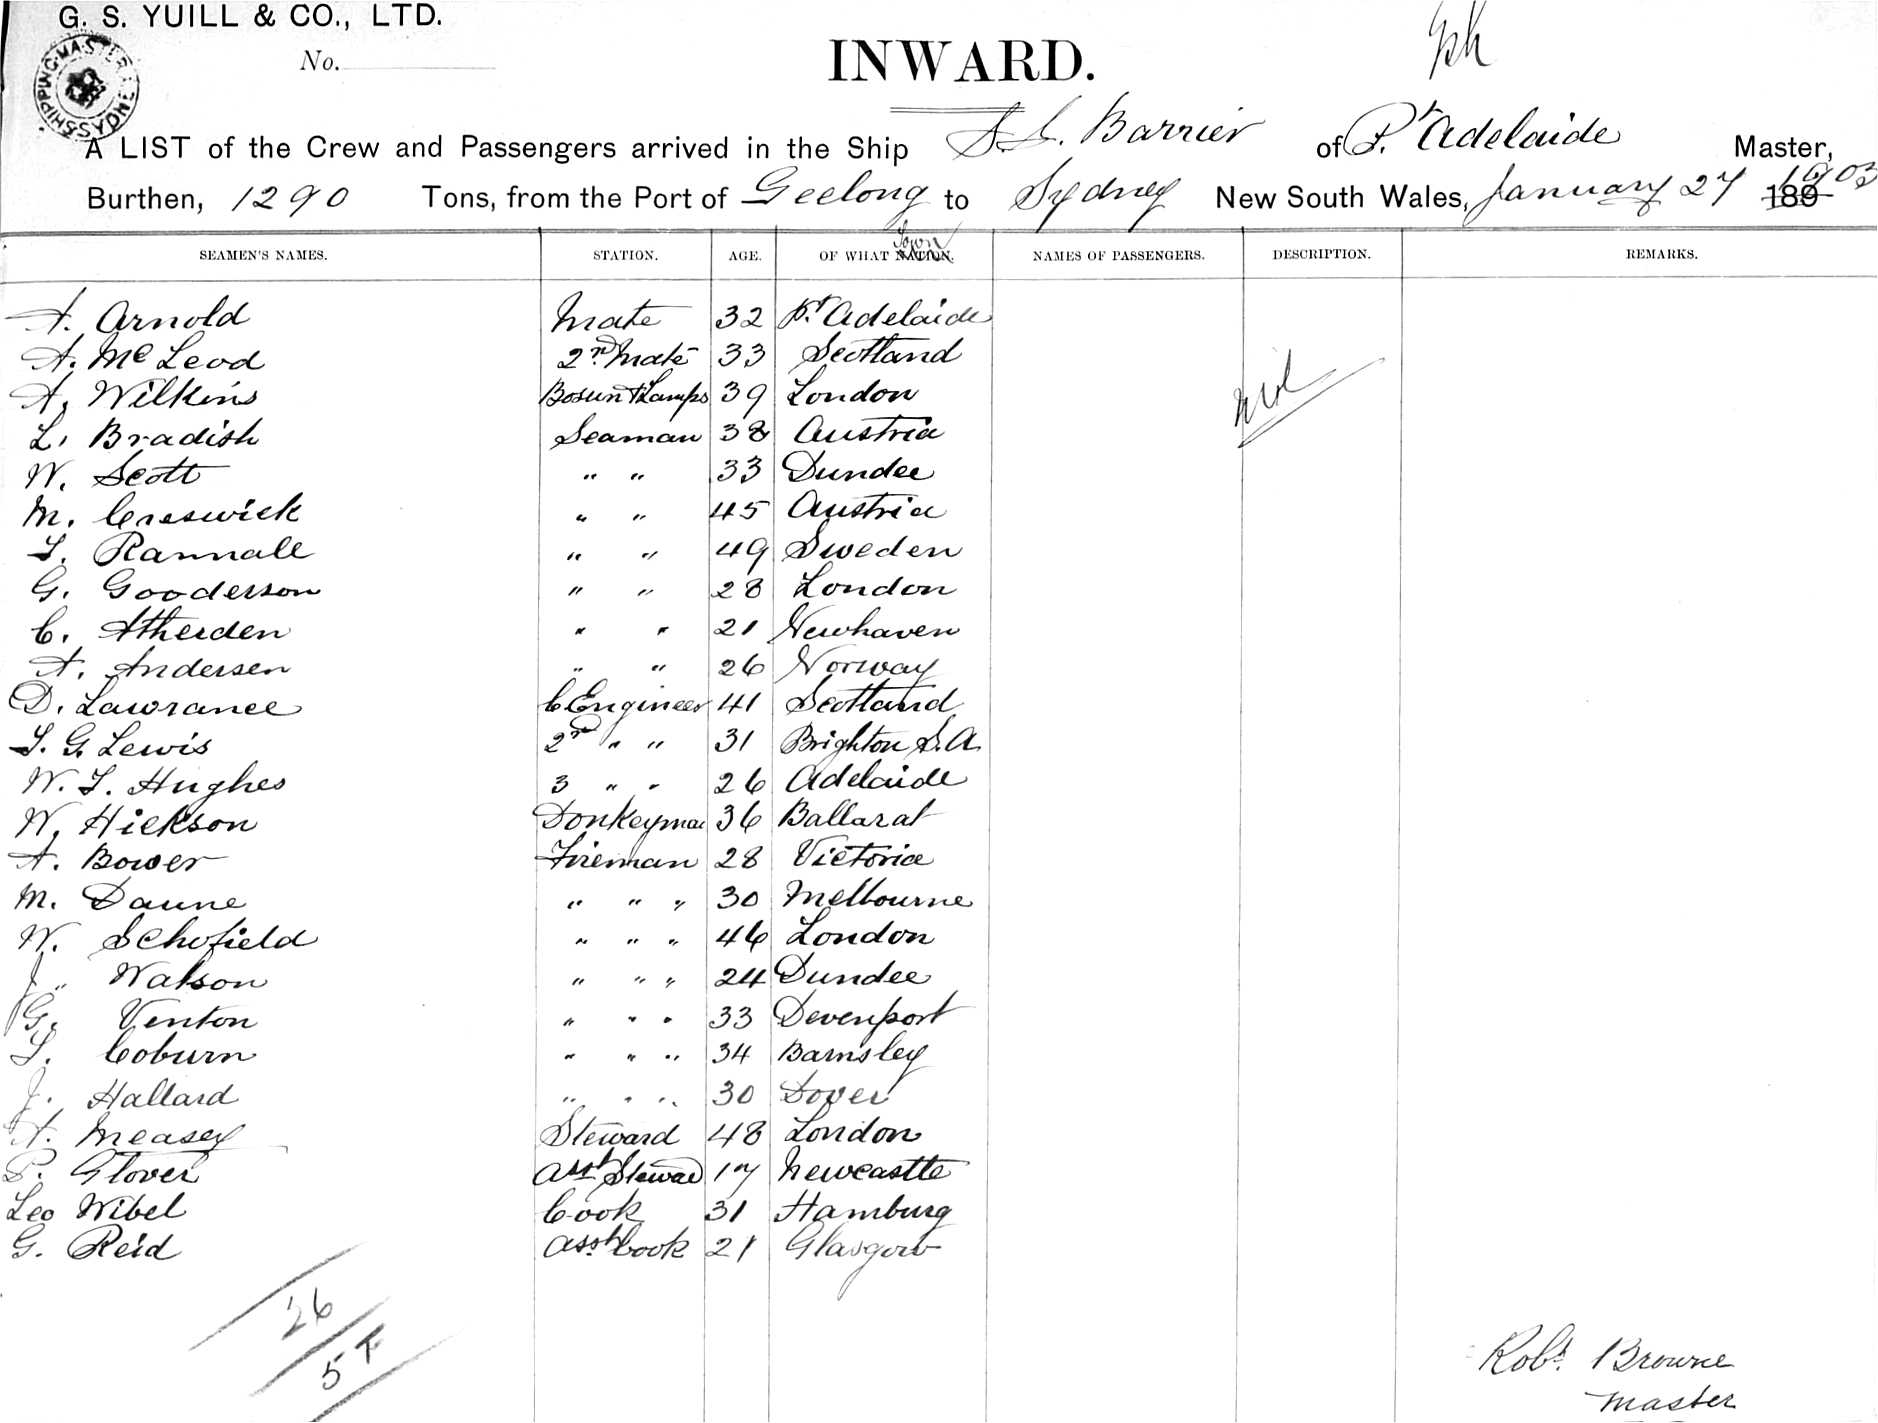 G. S. YUILL & CO., LTD.
No.
INWARD.
A LIST of the Crew and Passengers arrived in the Ship S.S. Barrier of Pt Adelaide Master,
Burthen, 1290 Tons, from the Port of Geelong to Sydney New South Wales, January 27 189 1903
SEAMEN'S NAMES. STATION. AGE. OF WHAT NATION. Town NAMES OF PASSENGERS. DESCRIPTION. REMARKS.
A. Arnold Mate 32 Pt Adelaide
A. McLeod 2nd Mate 33 Scotland
A. Wilkins Bosun & Lamps 39 London
L. Bradish Seaman 38 Austria
W. Scott " " 33 Dundee
M. Creswick " " 45 Austria
L. Rannall " " 49 Sweden
G. Gooderson " " 28 London
C. Atherden " " 21 Newhaven
A. Andersen " " 26 Norway
D. Lawrance C Engineer 41 Scotland
S. G. Lewis 2nd " " 31 Brighton S.A.
W. S. Hughes 3 " " 26 Adelaide
W. Hickson Donkeyman 36 Ballarat
A. Bower Fireman 28 Victoria
M. Daune " " " 30 Melbourne
W. Schofield " " " 46 London
J. Watson " " " 24 Dundee
G. Venton " " " 33 Devenport
S. Coburn " " " 34 Barnsley
J. Hallard " " " 30 Dover
A. Measey Steward 48 London
P. Glover Asst Steward 17 Newcastle
Leo Wibel Cook 31 Hamburg
G. Reid Asst Cook 21 Glasgow
Nil
26
54
Robt. Browne
Master